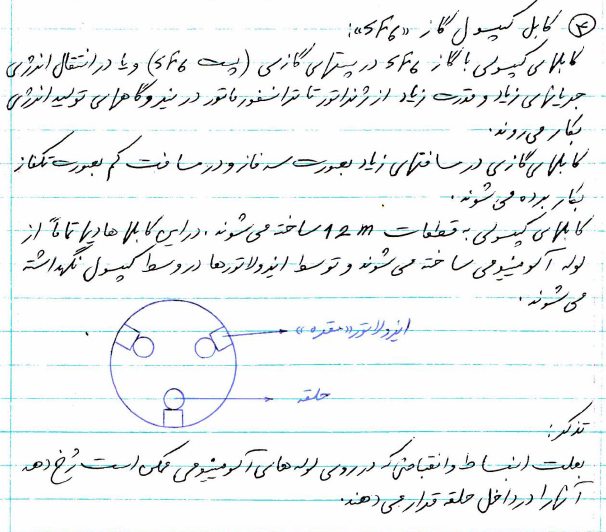 ④ کابل کپسول گاز «SF6»:
کابلهای کپسولی با گاز SF6 در پستهای گازی (پست SF6) و یا در انتقال انرژی
جریانهای زیاد و قدرت زیاد از ژنراتور تا ترانسفورماتور در نیروگاههای تولید انرژی
بکار می‌روند.
کابلهای گازی در مسافتهای زیاد بصورت سه فاز و در مسافت کم بصورت تکفاز
بکار برده می‌شوند.
کابلهای کپسولی به قطعات 12m ساخته می‌شوند. در این کابلها هادیها تماماً از
لوله آلومینیومی ساخته می‌شوند و توسط ایزولاتورها در وسط کپسول نگهداشته
می‌شوند.
ایزولاتور «مقره»
حلقه
تذکر:
بعلت انبساط و انقباضی که در روی لوله‌های آلومینیومی ممکن است رُخ دهد
آنها را در داخل حلقه قرار می‌دهند.